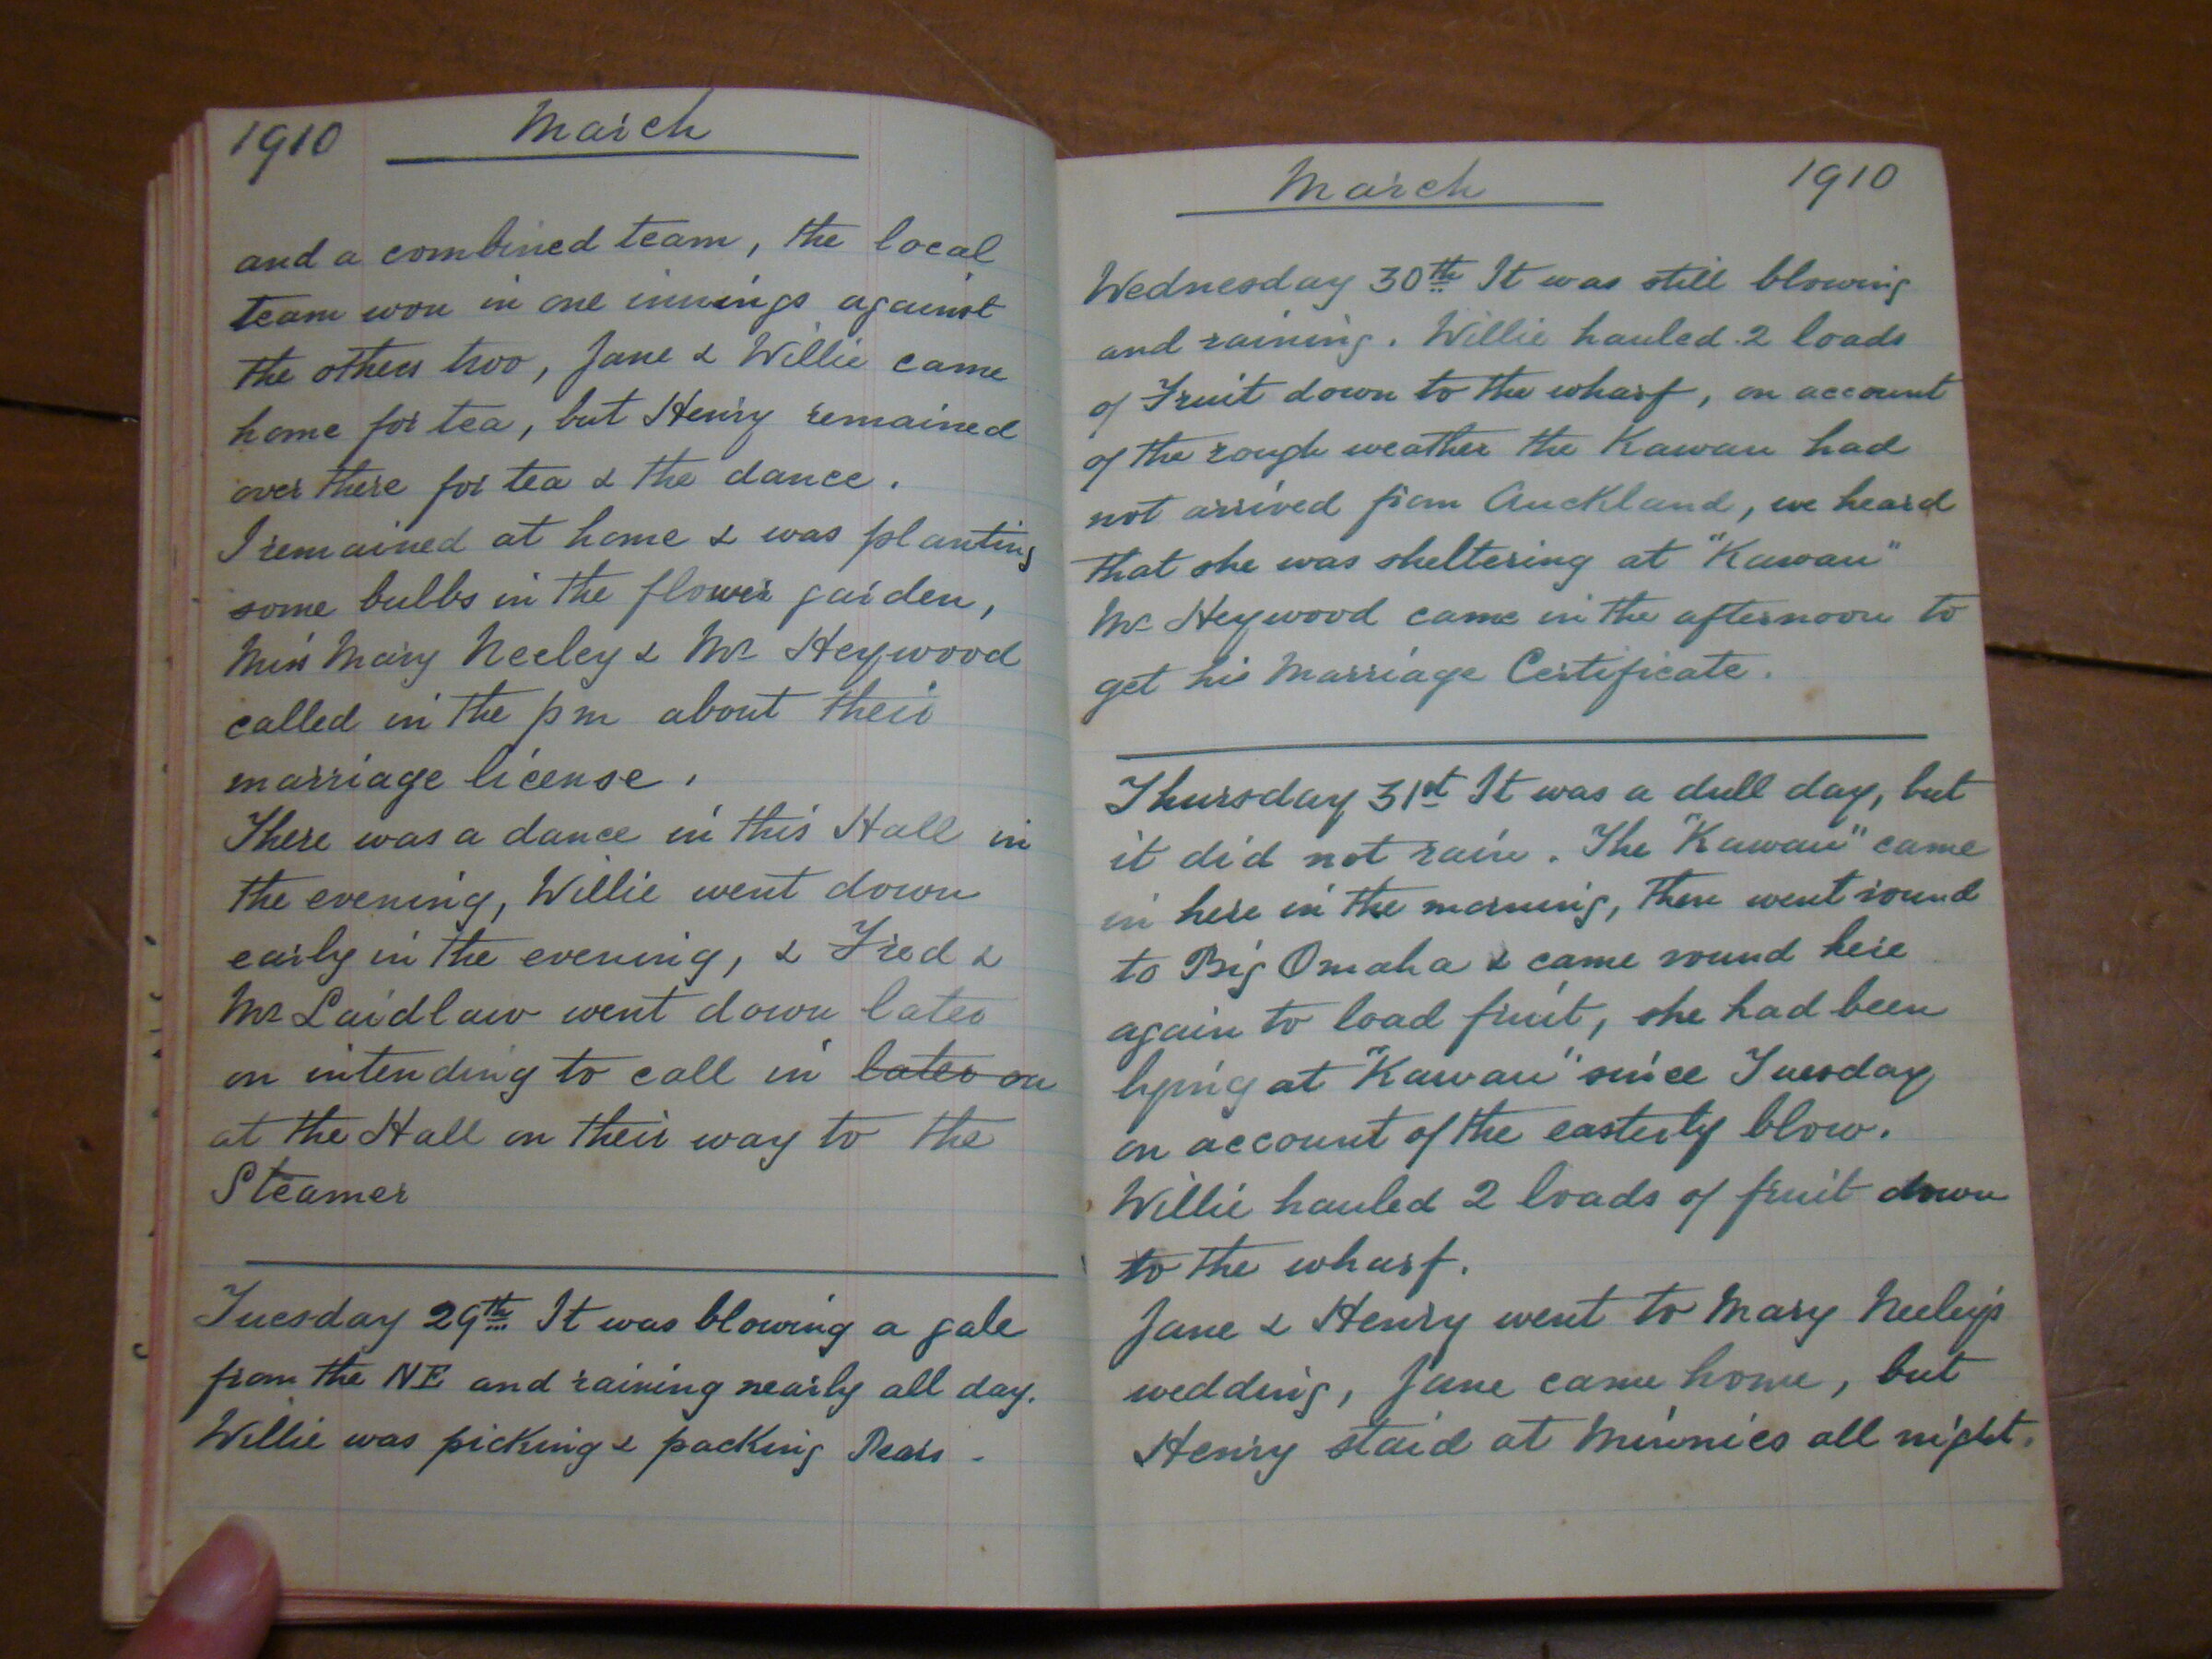 1910 March
and a combined team, the local
team won in one innings against
the others two, Jane & Willie came
home for tea, but Henry remained
over there for tea & the dance.
I remained at home & was planting
some bulbs in the flower garden,
Miss Mary Neeley & Mr Heywood
called in the pm about their
marriage license.
There was a dance in this Hall in
the evening, Willie went down
early in the evening, & Fred &
Mr Laidlaw went down later
on intending to call in later on
at the Hall on their way to the
Steamer
Tuesday 29th It was blowing a gale
from the NE and raining nearly all day.
Willie was picking & packing Pears -
March 1910
Wednesday 30th It was still blowing
and raining. Willie hauled 2 loads
of Fruit down to the wharf, on account
of the rough weather the Kawau had
not arrived from Auckland, we heard
that she was sheltering at "Kawau"
Mr Heywood came in the afternoon to
get his Marriage Certificate.
Thursday 31st It was a dull day, but
it did not rain. The "Kawau" came
in here in the morning, then went round
to Big Omaha & came round here
again to load fruit, she had been
lying at "Kawau" since Tuesday
on account of the easterly blow.
Willie hauled 2 loads of fruit down
to the wharf.
Jane & Henry went to Mary Neeley's
wedding, Jane came home, but
Henry staid at Minnies all night.